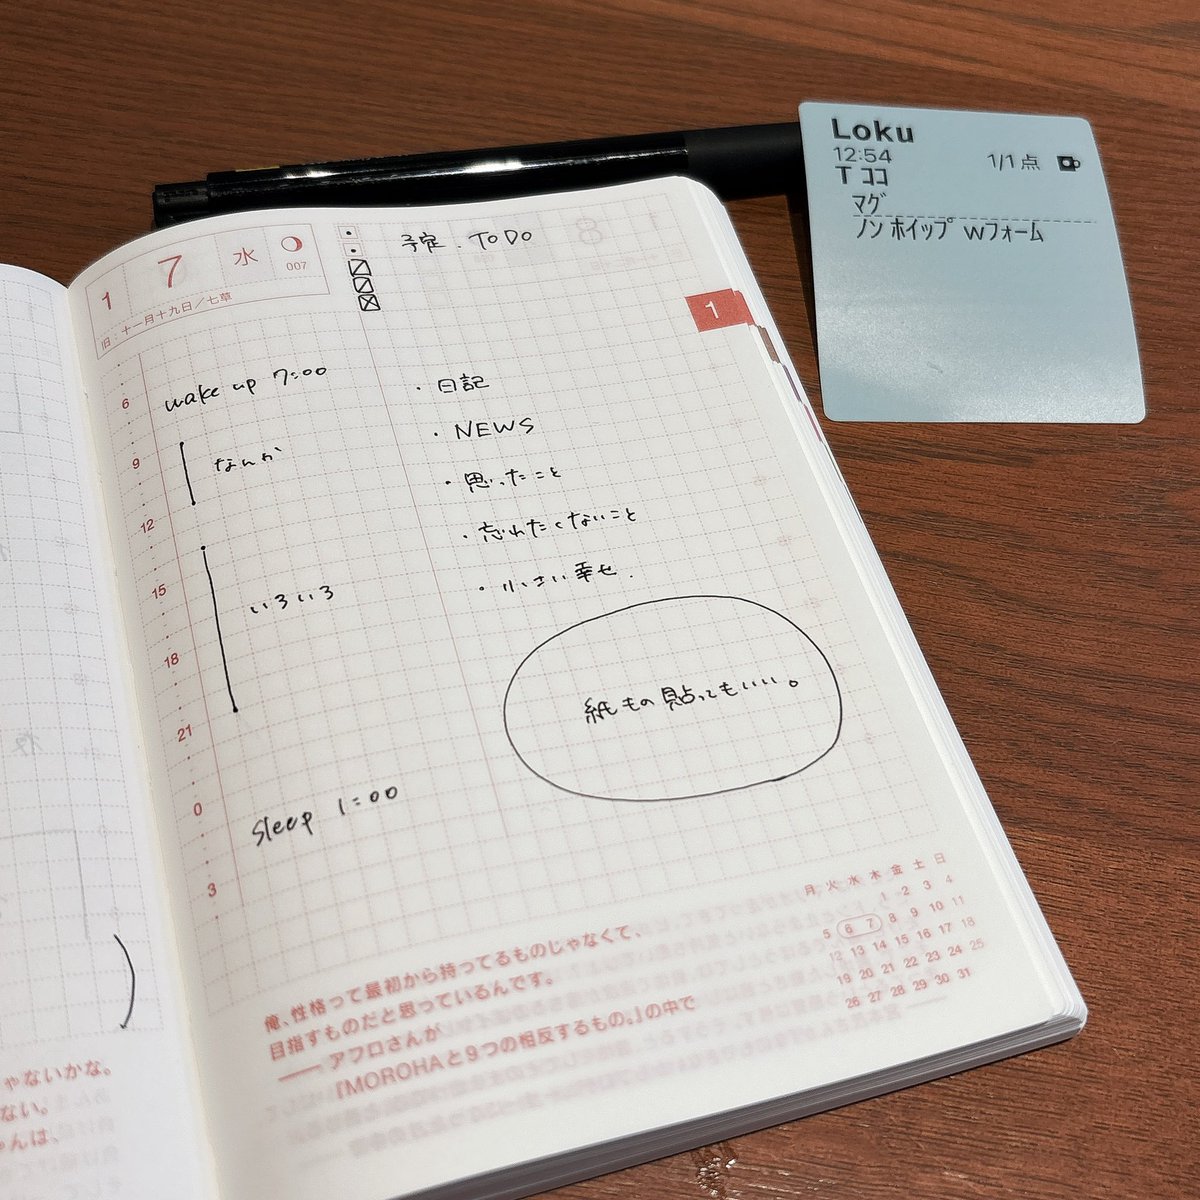 Loku
12:54
1/1点
T ココ
マグ
ノンホイップ Wフォーム
1 7 水
007
旧:十一月十九日/七草
予定.TODO
1
6
9
12
15
18
21
0
3
wake up 7:00
なんか
いろいろ
sleep 1:00
・日記
・NEWS
・思ったこと
・忘れたくないこと
・小さい幸せ.
紙もの貼ってもいい。
月 火 水 木 金 土 日
1 2 3 4
5 6 7 8 9 10 11
12 13 14 15 16 17 18
19 20 21 22 23 24 25
26 27 28 29 30 31
俺、性格って最初から持ってるものじゃなくて、
目指すものだと思っているんです。
―― アフロさんが
『MOROHAと9つの相反するもの。』の中で
ゃないかな。
ない。
ゃんは、